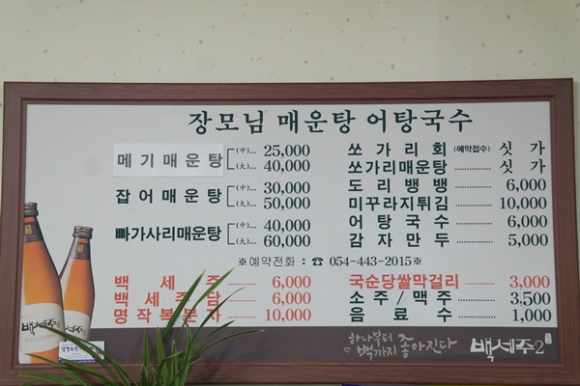 장모님 매운탕 어탕국수
메기매운탕 (中)... 25,000
(大)... 40,000
잡어매운탕 (中)... 30,000
(大)... 50,000
빠가사리매운탕 (中)... 40,000
(大)... 60,000
쏘가리회 (예약접수) 싯가
쏘가리매운탕 ........ 싯가
도리뱅뱅 ........ 6,000
미꾸라지튀김 ........ 10,000
어탕국수 ........ 6,000
감자만두 ........ 5,000
※예약전화 : ☎ 054-443-2015※
백세주 6,000
백세주담 6,000
명작복분자 10,000
국순당쌀막걸리 ........ 3,000
소주/맥주 ........ 3,500
음료수 ........ 1,000
하나부터 백까지 좋아진다
백세주2
백세주